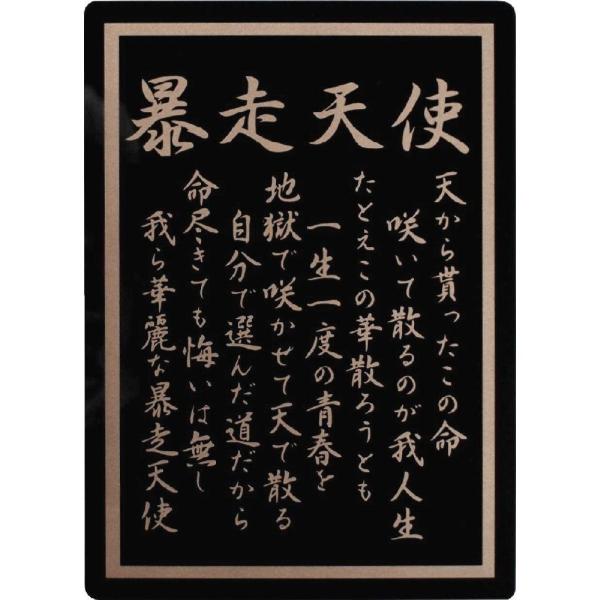 暴走天使
天から貰ったこの命
咲いて散るのが我人生
たとえこの華散ろうとも
一生一度の青春を
地獄で咲かせて天で散る
自分で選んだ道だから
命尽きても悔いは無し
我ら華麗な暴走天使